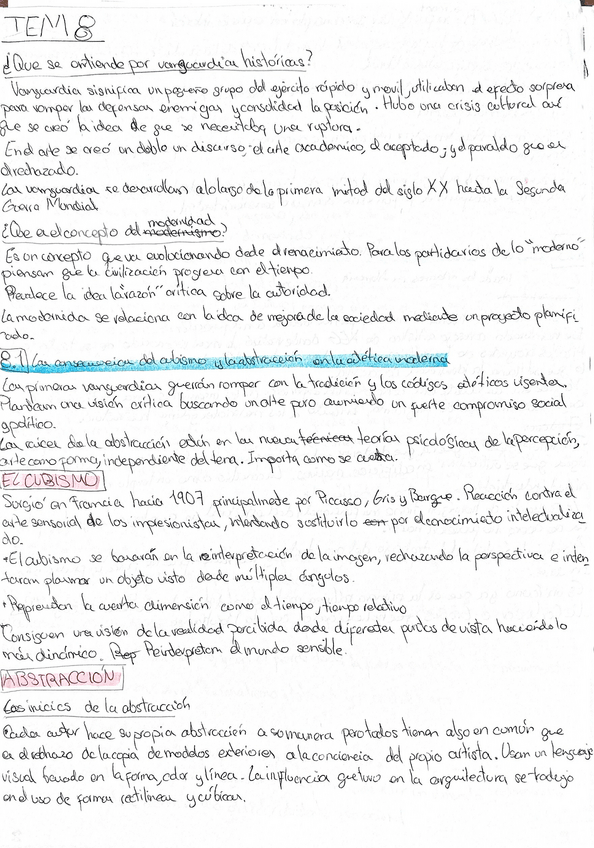 TEM 8
¿Que se entiende por vanguardias históricas?
Vanguardia significa un pequeño grupo del ejército rápido y movil, utilizaban el efecto sorpresa
para romper las defensas enemigas y consolidad la posición. Hubo una crisis cultural así
que se creó la idea de que se necesitaba una ruptura.
En el arte se creó un doble un discurso, el arte academico, el aceptado; y el paralelo que es
el rechazado.
Las vanguardias se desarrollan a lo largo de la primera mitad del siglo XX hasta la Segunda
Guerra Mundial
¿Que es el concepto del modernismo modernidad?
Es un concepto que va evolucionando desde el renacimiento. Para los partidarios de lo "moderno"
piensan que la civilización progresa con el tiempo.
Prevalece la idea la "razón" crítica sobre la autoridad.
La modernidad se relaciona con la idea de mejora de la sociedad mediante un proyecto planifi
cado.
8.1) Las consecuencias del cubismo y la abstracción en la estética moderna
Las primeras vanguardias querrán romper con la tradición y los códigos estéticos vigentes.
Plantean una visión crítica buscando un arte puro asumiendo un fuerte compromiso social
y político.
Las raices de la abstracción están en las nuevas técnicas teorías psicológicas de la percepción,
arte como forma, independiente del tema. Importa como se cuenta.
EL CUBISMO
Surgió en Francia hacia 1907 principalmente por Picasso, Gris y Braque. Reacción contra el
arte sensorial de los impresionistas, intentando sustituirlo por el conocimiento intelectualiza
do.
• El cubismo se basarán en la reinterpretación de la imagen, rechazando la perspectiva e inten
taran plasmar un objeto visto desde múltiples ángulos.
• Reprensentan la cuarta dimensión como el tiempo, tiempo relativo
Consiguen una visión de la realidad percibida desde diferentes puntos de vista haciendolo
más dinámico. Rep Reinterpretan el mundo sensible.
ABSTRACCIÓN
Los inicios de la abstracción
Cada autor hace su propia abstracción a su manera pero todos tienen algo en común que
es el rechazo de la copia de modelos exteriores a la conciencia del propio artista. Usan un lenguaje
visual basado en la forma, color y línea. La influencia que tuvo en la arquitectura se tradujo
en el uso de formas rectilíneas y cúbicas.